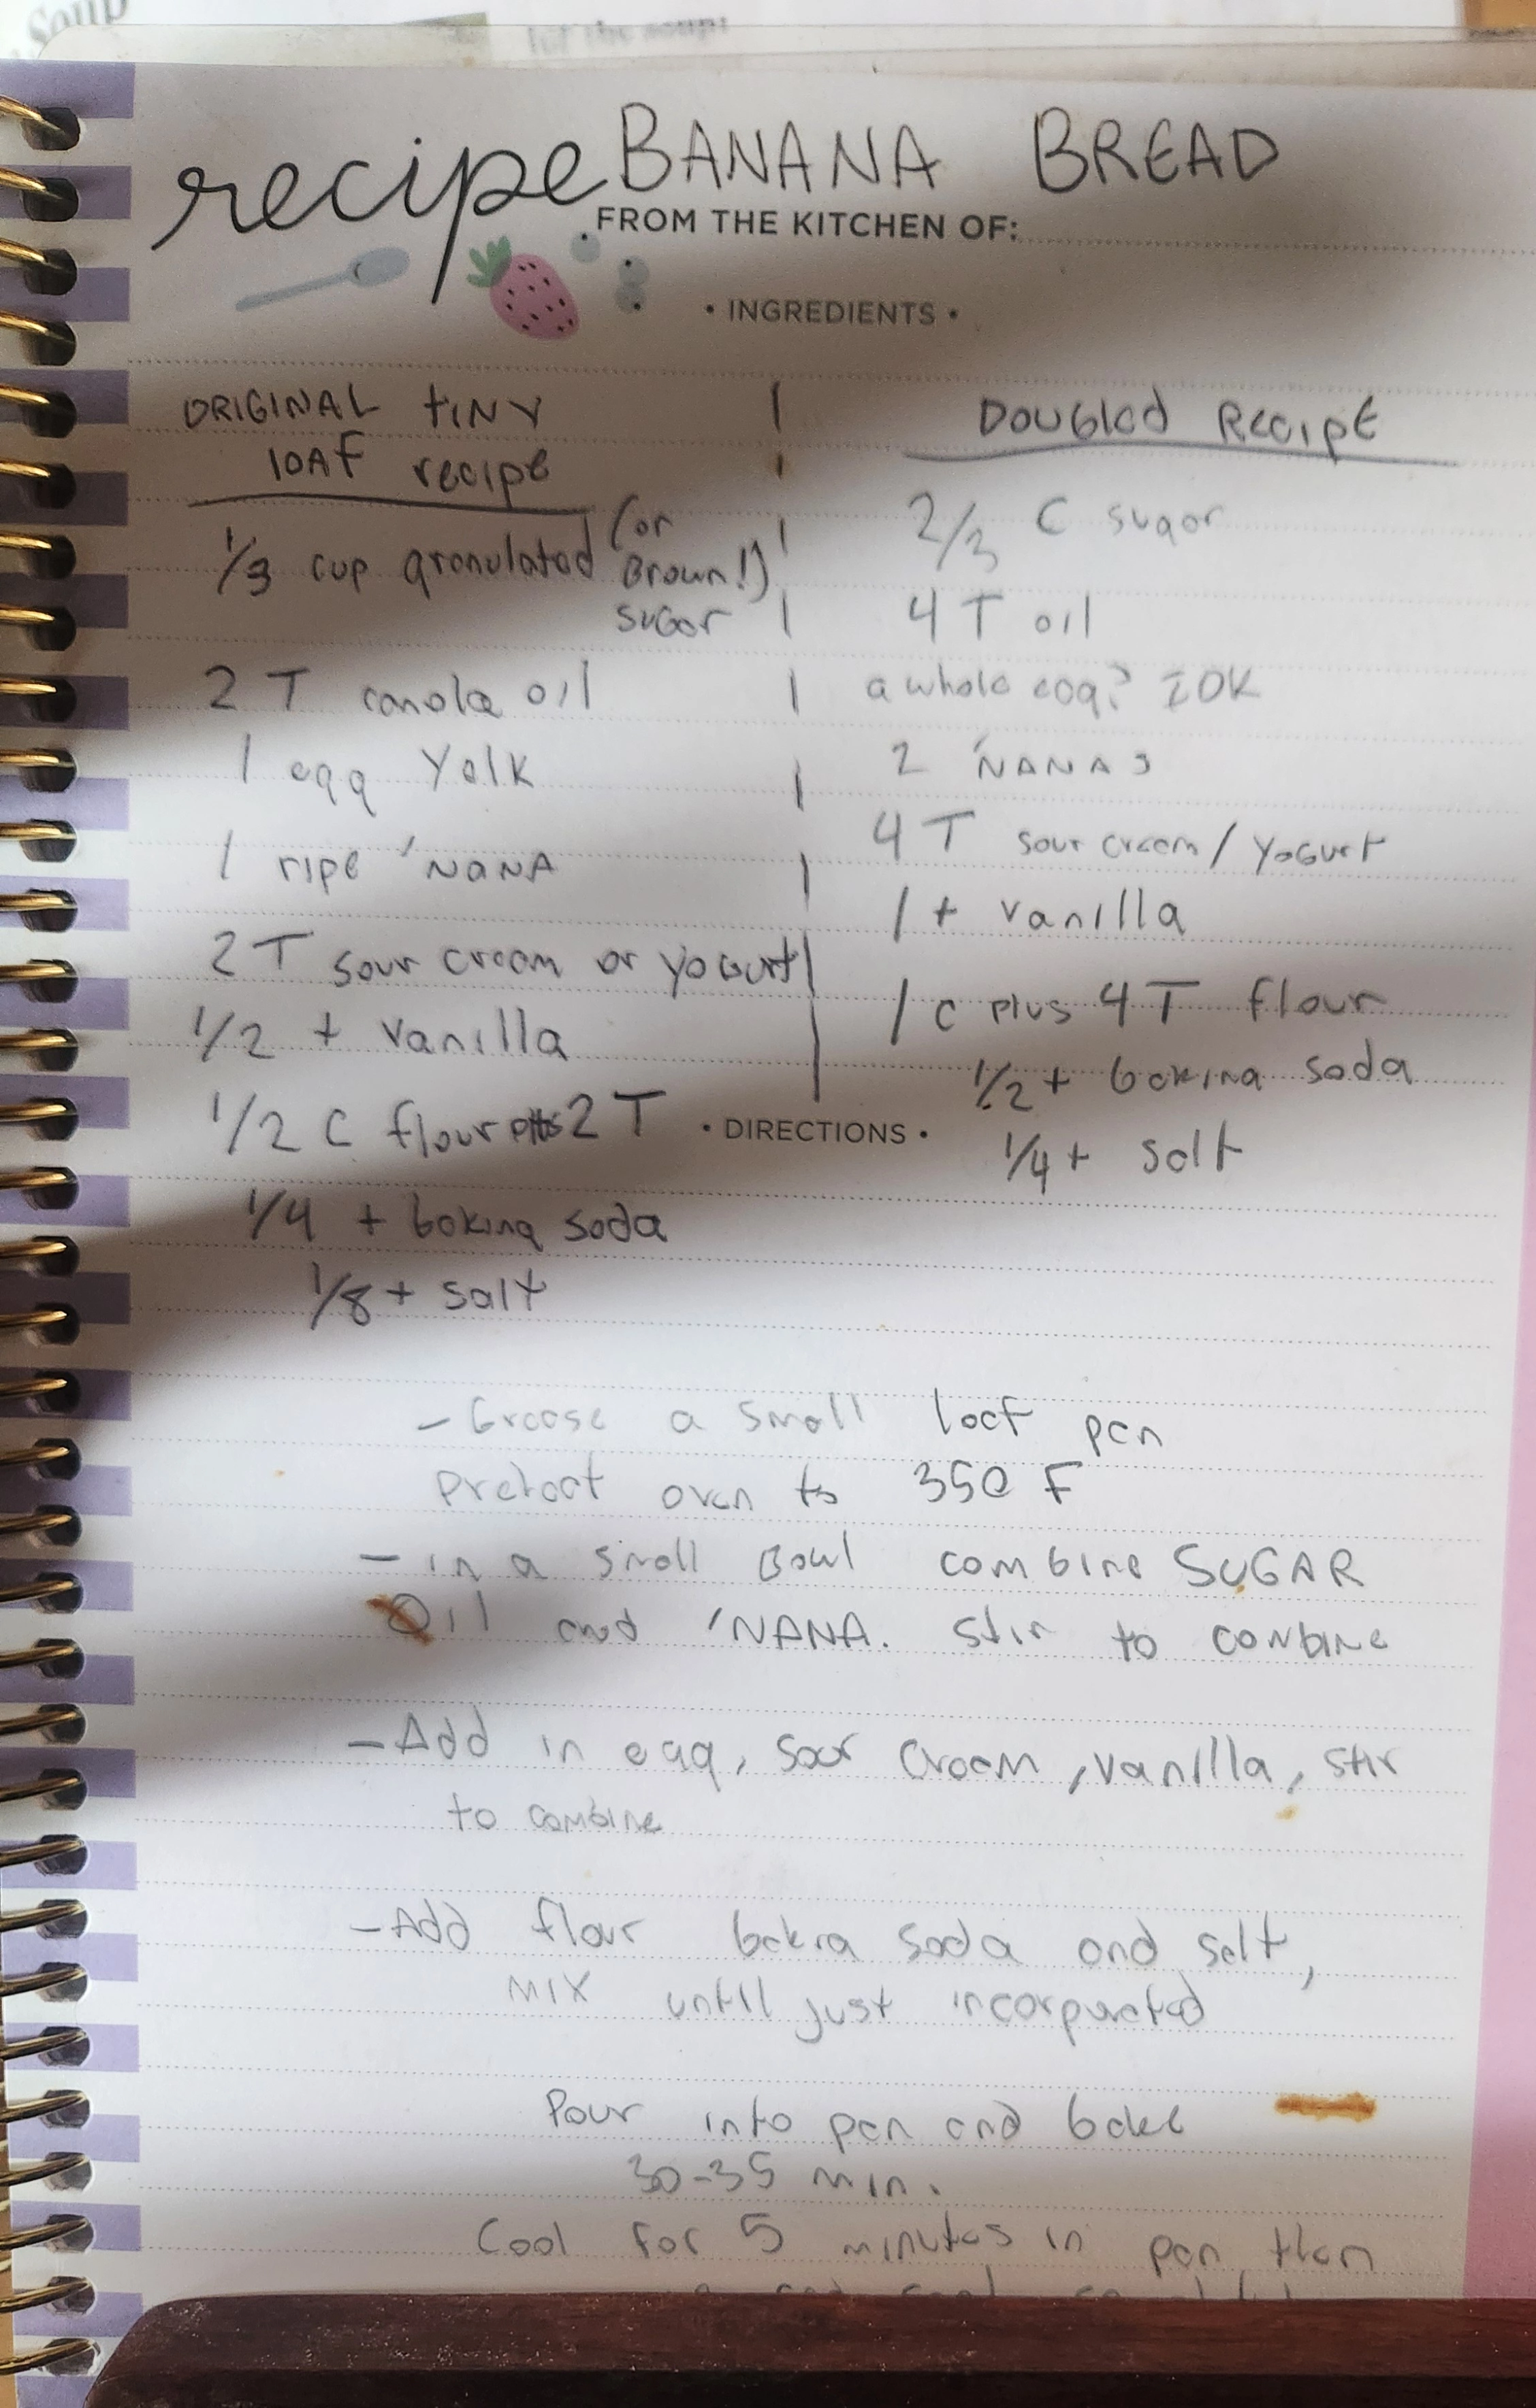 Soup
for the soup:
recipe BANANA BREAD
FROM THE KITCHEN OF:
• INGREDIENTS •
ORIGINAL tiNY
lOAF recipe
1/3 cup granulated (or
Brown!)
sugar
2 T canola oil
1 egg Yolk
1 ripe 'NANA
2 T sour cream or yogurt
1/2 t vanilla
1/2 C flour plus 2 T
1/4 t baking soda
1/8 t salt
Doubled Recipe
2/3 C sugar
4 T oil
a whole egg? IDK
2 'NANAS
4 T sour cream / Yogurt
1 t vanilla
1 c plus 4 T flour
1/2 t baking soda
1/4 t salt
• DIRECTIONS •
- Grease a small loaf pan
Preheat oven to 350 F
- in a small Bowl combine SUGAR
Oil and 'NANA. stir to combine
- Add in egg, sour cream, vanilla, stir
to combine
- Add flour baking soda and salt,
MIX until just incorporated
Pour into pan and bake
30-35 min.
Cool for 5 minutes in pan then